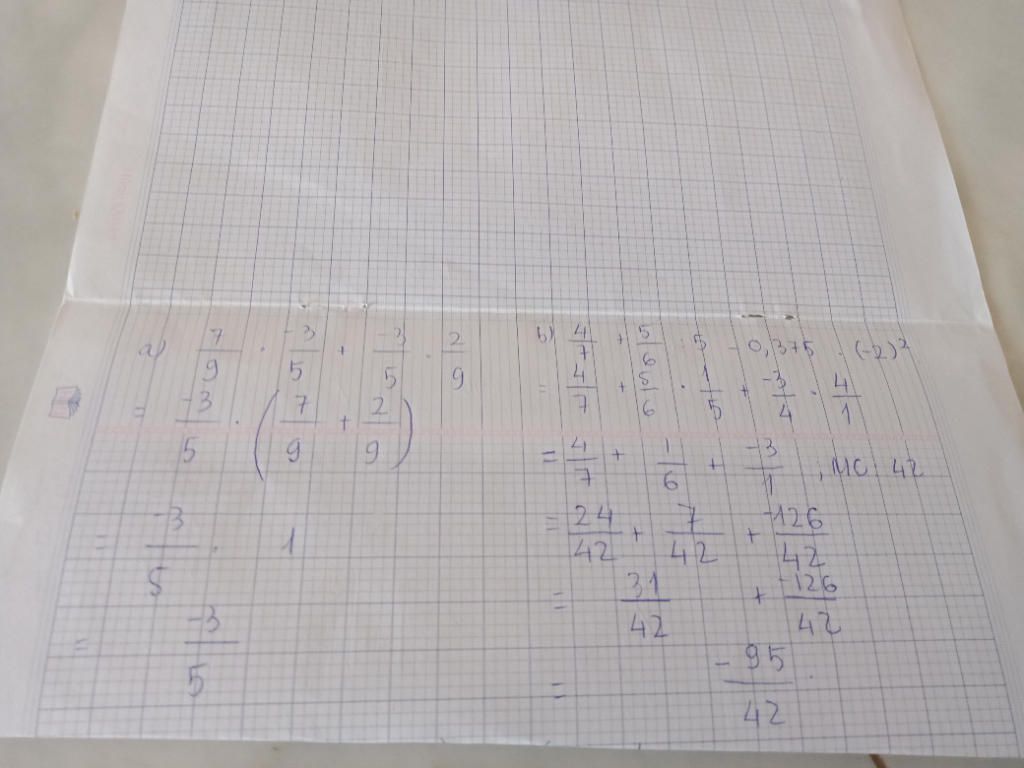 a) 7/9 . -3/5 + -3/5 . 2/9
= -3/5 . (7/9 + 2/9)
= -3/5 . 1
= -3/5
b) 4/7 + 5/6 : 5 - 0,375 . (-2)²
= 4/7 + 5/6 . 1/5 + -3/4 . 4/1
= 4/7 + 1/6 + -3/1 , MC : 42
= 24/42 + 7/42 + -126/42
= 31/42 + -126/42
= -95/42 .